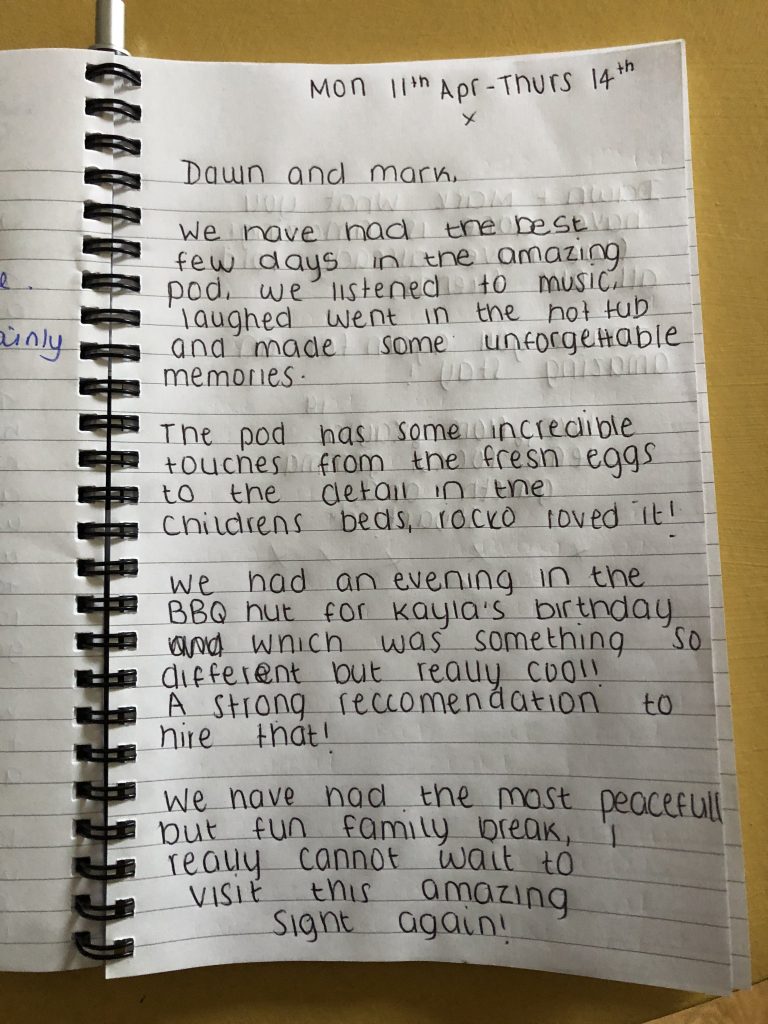 Mon 11th Apr - Thurs 14th
x
Dawn and mark,
We have had the best
few days in the amazing
pod, we listened to music,
laughed went in the hot tub
and made some unforgettable
memories.
The pod has some incredible
touches from the fresh eggs
to the detail in the
childrens beds, rocko loved it!
We had an evening in the
BBQ hut for Kayla's birthday
which was something so
different but really cool!
A strong reccomendation to
hire that!
We have had the most peacefull
but fun family break, I
really cannot wait to
visit this amazing
Sight again!
ainly